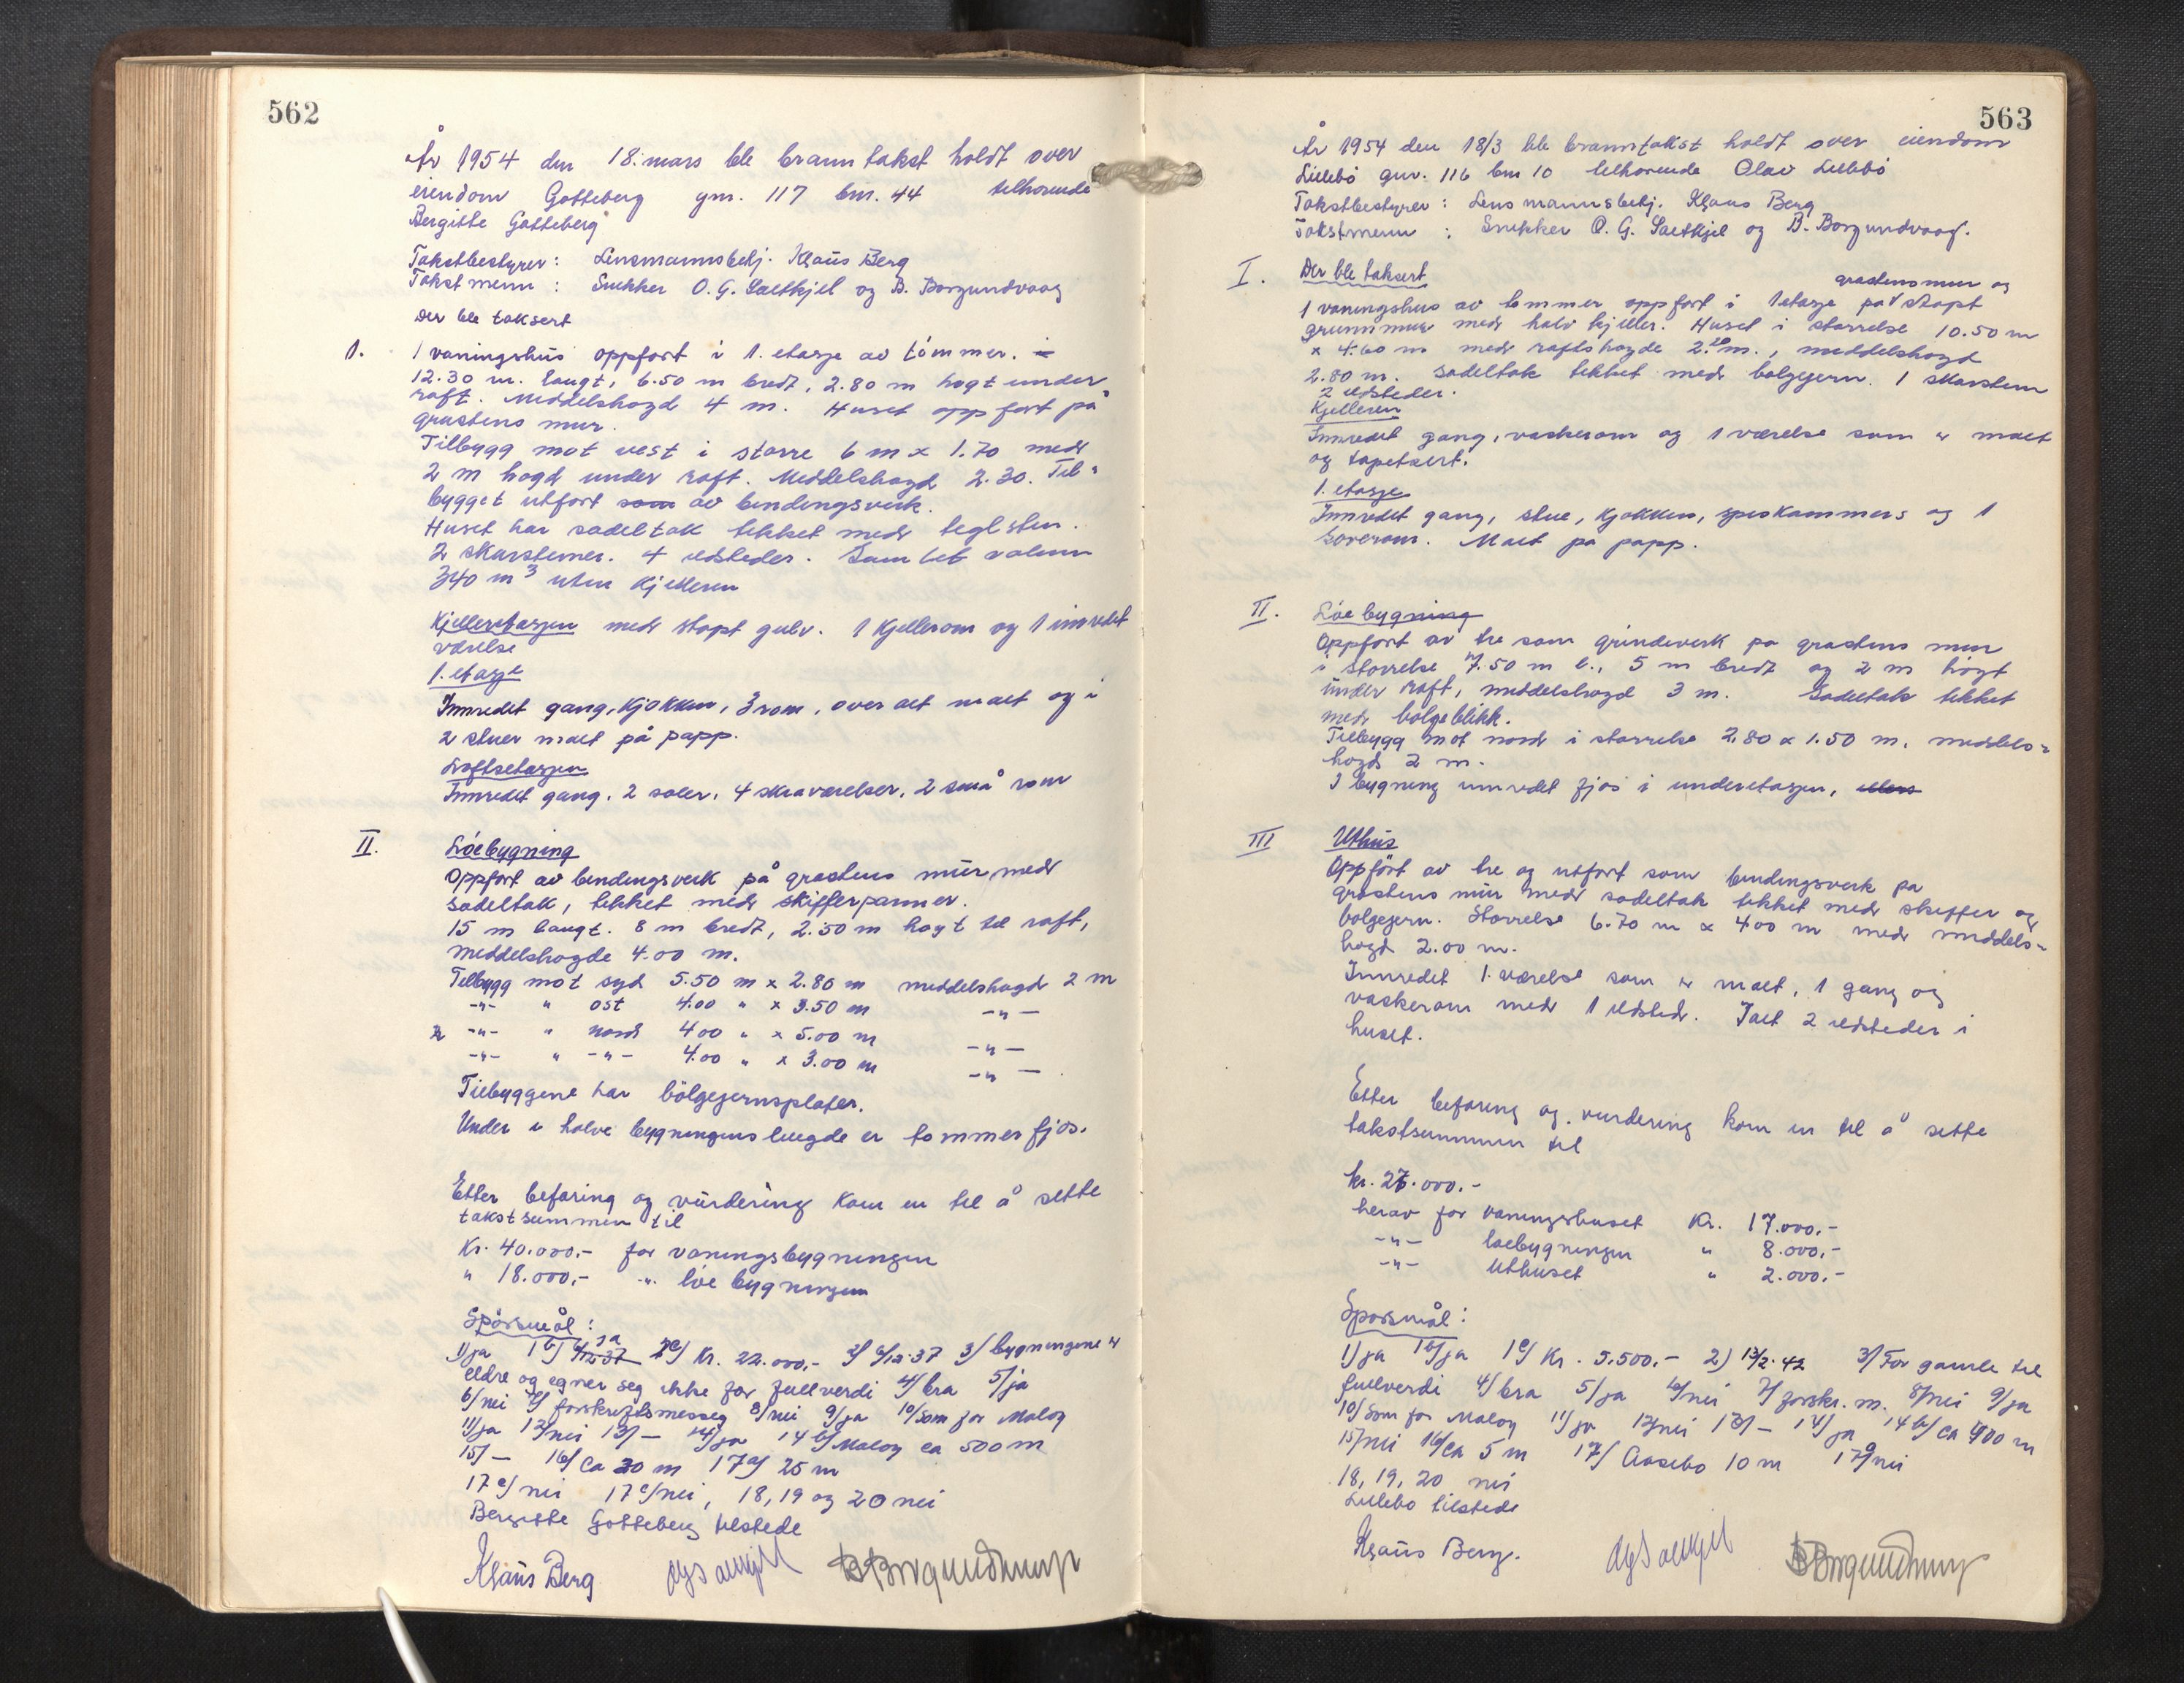 562
År 1954 den 18. mars ble branntakst holdt over
eiendom Gotteberg gnr. 117 bnr. 44 tilhorende
Bergitte Gotteberg
Takstbestyrer: Lensmannsbetj. Klaus Berg
Takstmenn : Snekker O. G. Saltkjel og B. Borgundvaag
Der ble taksert
1. 1 vaningshus oppfort i 1. etasje av tømmer.
12.30 m. langt, 6.50 m bredt, 2.80 m hogt under
raft. Middelshogd 4 m. Huset oppfort på
grastens mur.
Tilbygg mot vest i storre 6 m x 1.70 med
2 m hogd under raft. Middelshogd 2.30. Til-
bygget utfort som av bendingsverk.
Huset har sadeltak tekket med teglsten.
2 skorstener. 4 ildsteder. Samlet volum
340 m3 uten kjelleren
Kjelleretasjen med stopt gulv. 1 kjellerom og 1 innredet
værelse
1. etasje
Innredet gang, kjøkken, 3 rom, over alt malt og i
2 stuer malt på papp.
Loftsetasjen
Innredet gang, 2 saler, 4 skraværelser, 2 små rom
II. Löebygning
Oppfort av bendingsverk på grastens mur med
sadeltak, tekket med skifferpanner.
15 m langt. 8 m bredt, 2.50 m hogt til raft,
middelshogde 4.00 m.
Tilbygg mot syd 5.50 m x 2.80 m middelshogd 2 m
-"- " ost 4.00 " x 3.50 m -"-
-"- " nord 4.00 " x 5.00 m -"-
-"- " -"- 4.00 " x 3.00 m -"-
Tilbyggene har bölgejernsplater.
Under i halve bygningens lengde er tommerfjos.
Etter befaring og vurdering kom en til å sette
takstsummen til
Kr. 40.000,- for vaningsbygningen
" 18.000,- -"- löebygningen
Spörsmål:
1/ ja 1b/ 6/12-37 ja 1c/ Kr. 22.000,- 2/ 6/12-37 3/ bygningene er
eldre og egner seg ikke for fullverdi 4/ bra 5/ ja
6/ nei 7/ forskriftsmessig 8/ nei 9/ ja 10/ Som for Maloy
11/ ja 12/ nei 13/ - 14/ ja 14b/ Maloy ca 500 m
15/ - 16/ Ca 30 m 17a/ 25 m
17c/ nei 17c/ nei, 18, 19 og 20 nei
Bergitte Gotteberg tilstede
Klaus Berg
563
År 1954 den 18/3 ble branntakst holdt over eiendom
Lillebö gnr. 116 bnr 10 tilhorende Olav Lillebö
Takstbestyrer: Lensmannsbetj. Klaus Berg
Takstmenn : Snekker O. G. Saltkjel og B. Borgundvaag.
I. Der ble taksert
grastensmur og
1 vaningshus av tommer oppfort i 1 etasje på stopt
grunnmur med halv kjeller. Huset i storrelse 10.50 m
x 4.60 m med raftshogde 2.20 m., middelshogd
2.80 m. Sadeltak tekket med bolgejern. 1 skorsten
2 ildsteder.
Kjelleren
Innredet gang, vaskerom og 1 værelse som er malt
og tapetsert.
1. etasje
Innredet gang, stue, kjøkken, spiskammers og 1
soverom. Malt på papp.
II. Löebygning
Oppfort av tre som grindverk på grastens mur
i storrelse 7.50 m l., 5 m bredt og 2 m högt
under raft, middelshogd 3 m. Sadeltak tekket
med bolgeblikk.
Tilbygg mot nord i storrelse 2.80 x 1.50 m. middels-
hogd 2 m.
I bygning innredet fjös i underetasjen, ellers
III Uthus
Oppfört av tre og utfort som bendingsverk på
grastens mur med sadeltak tekket med skiffer og
bolgejern. Storrelse 6.70 m x 4.00 m med middels-
hogd 2.00 m.
Innredet 1 værelse som er malt, 1 gang og
vaskerom med 1 ildsted. I alt 2 ildsteder i
huset.
Etter befaring og vurdering kom en til å sette
takstsummen til
kr. 27.000.-
herav for vaningshuset Kr. 17.000,-
-"- löebygningen " 8.000,-
-"- Uthuset " 2.000,-
Sporsmål:
1) ja 1b/ ja 1c/ Kr. 5.500,- 2) 13/2-42 3/ For gamle til
fullverdi 4/ bra 5/ ja 6/ nei 7/ forskr. m. 8/ nei 9/ ja
10/ Som for Maloy 11/ ja 12/ nei 13/ - 14/ ja 14b/ Ca 900 m
15/ nei 16/ Ca 5 m 17/ Aasebo 10 m 17c/ nei
18, 19, 20 nei
Lillebo tilstede
Klaus Berg.